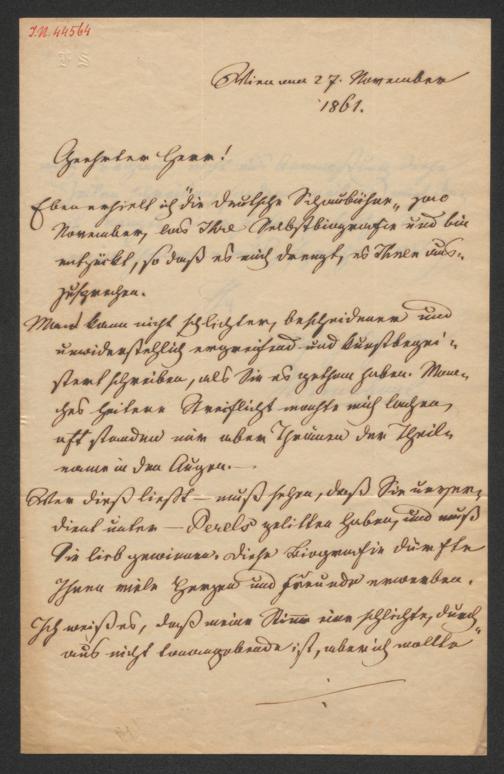 J.N. 44564
Wien am 27. November
1861.
Geehrter Herr!
Eben erhielt ich "die deutsche Schaubühne" pro
November, las Ihre Selbstbiografie und bin
entzückt, so daß es mich drengt, es Ihnen aus-
zusprechen.
Man kann nicht schlichter, bescheidener und
unwiderstehlich ergreifend und kunstbegei-
stert schreiben, als Sie es gethan haben. Man-
ches heitere Streiflicht machte mich lachen,
oft standen mir aber Thränen der Theil-
name in den Augen. —
Wer dieß ließt — muß sehen, daß Sie unver-
dient unter — Perels gelitten haben, und muß
Sie lieb gewinnen. Diese Biografie dürfte
Ihnen viele Herzen und Freunde erwerben.
Ich weiß es, daß meine Stimme eine schlichte, durch-
aus nicht tonangebende ist, aber ich wollte